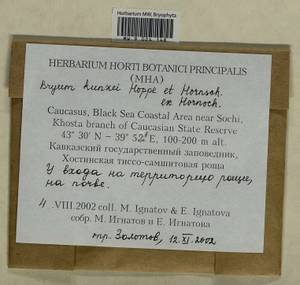 Herbarium MW, Bryophyta
HERBARIUM HORTI BOTANICI PRINCIPALIS
(MHA)
Bryum kunzei Hoppe et Hornsch.
ex Hornsch.
Caucasus, Black Sea Coastal Area near Sochi,
Khosta branch of Caucasian State Reserve
43° 30' N – 39° 52' E, 100-200 m alt.
Кавказский государственный заповедник,
Хостинская тиссо-самшитовая роща
У входа на территорию рощи,
на почве.
4 .VIII.2002 coll. M. Ignatov & E. Ignatova
собр. М. Игнатов и Е. Игнатова
опр. Золотов, 12.XI.2002